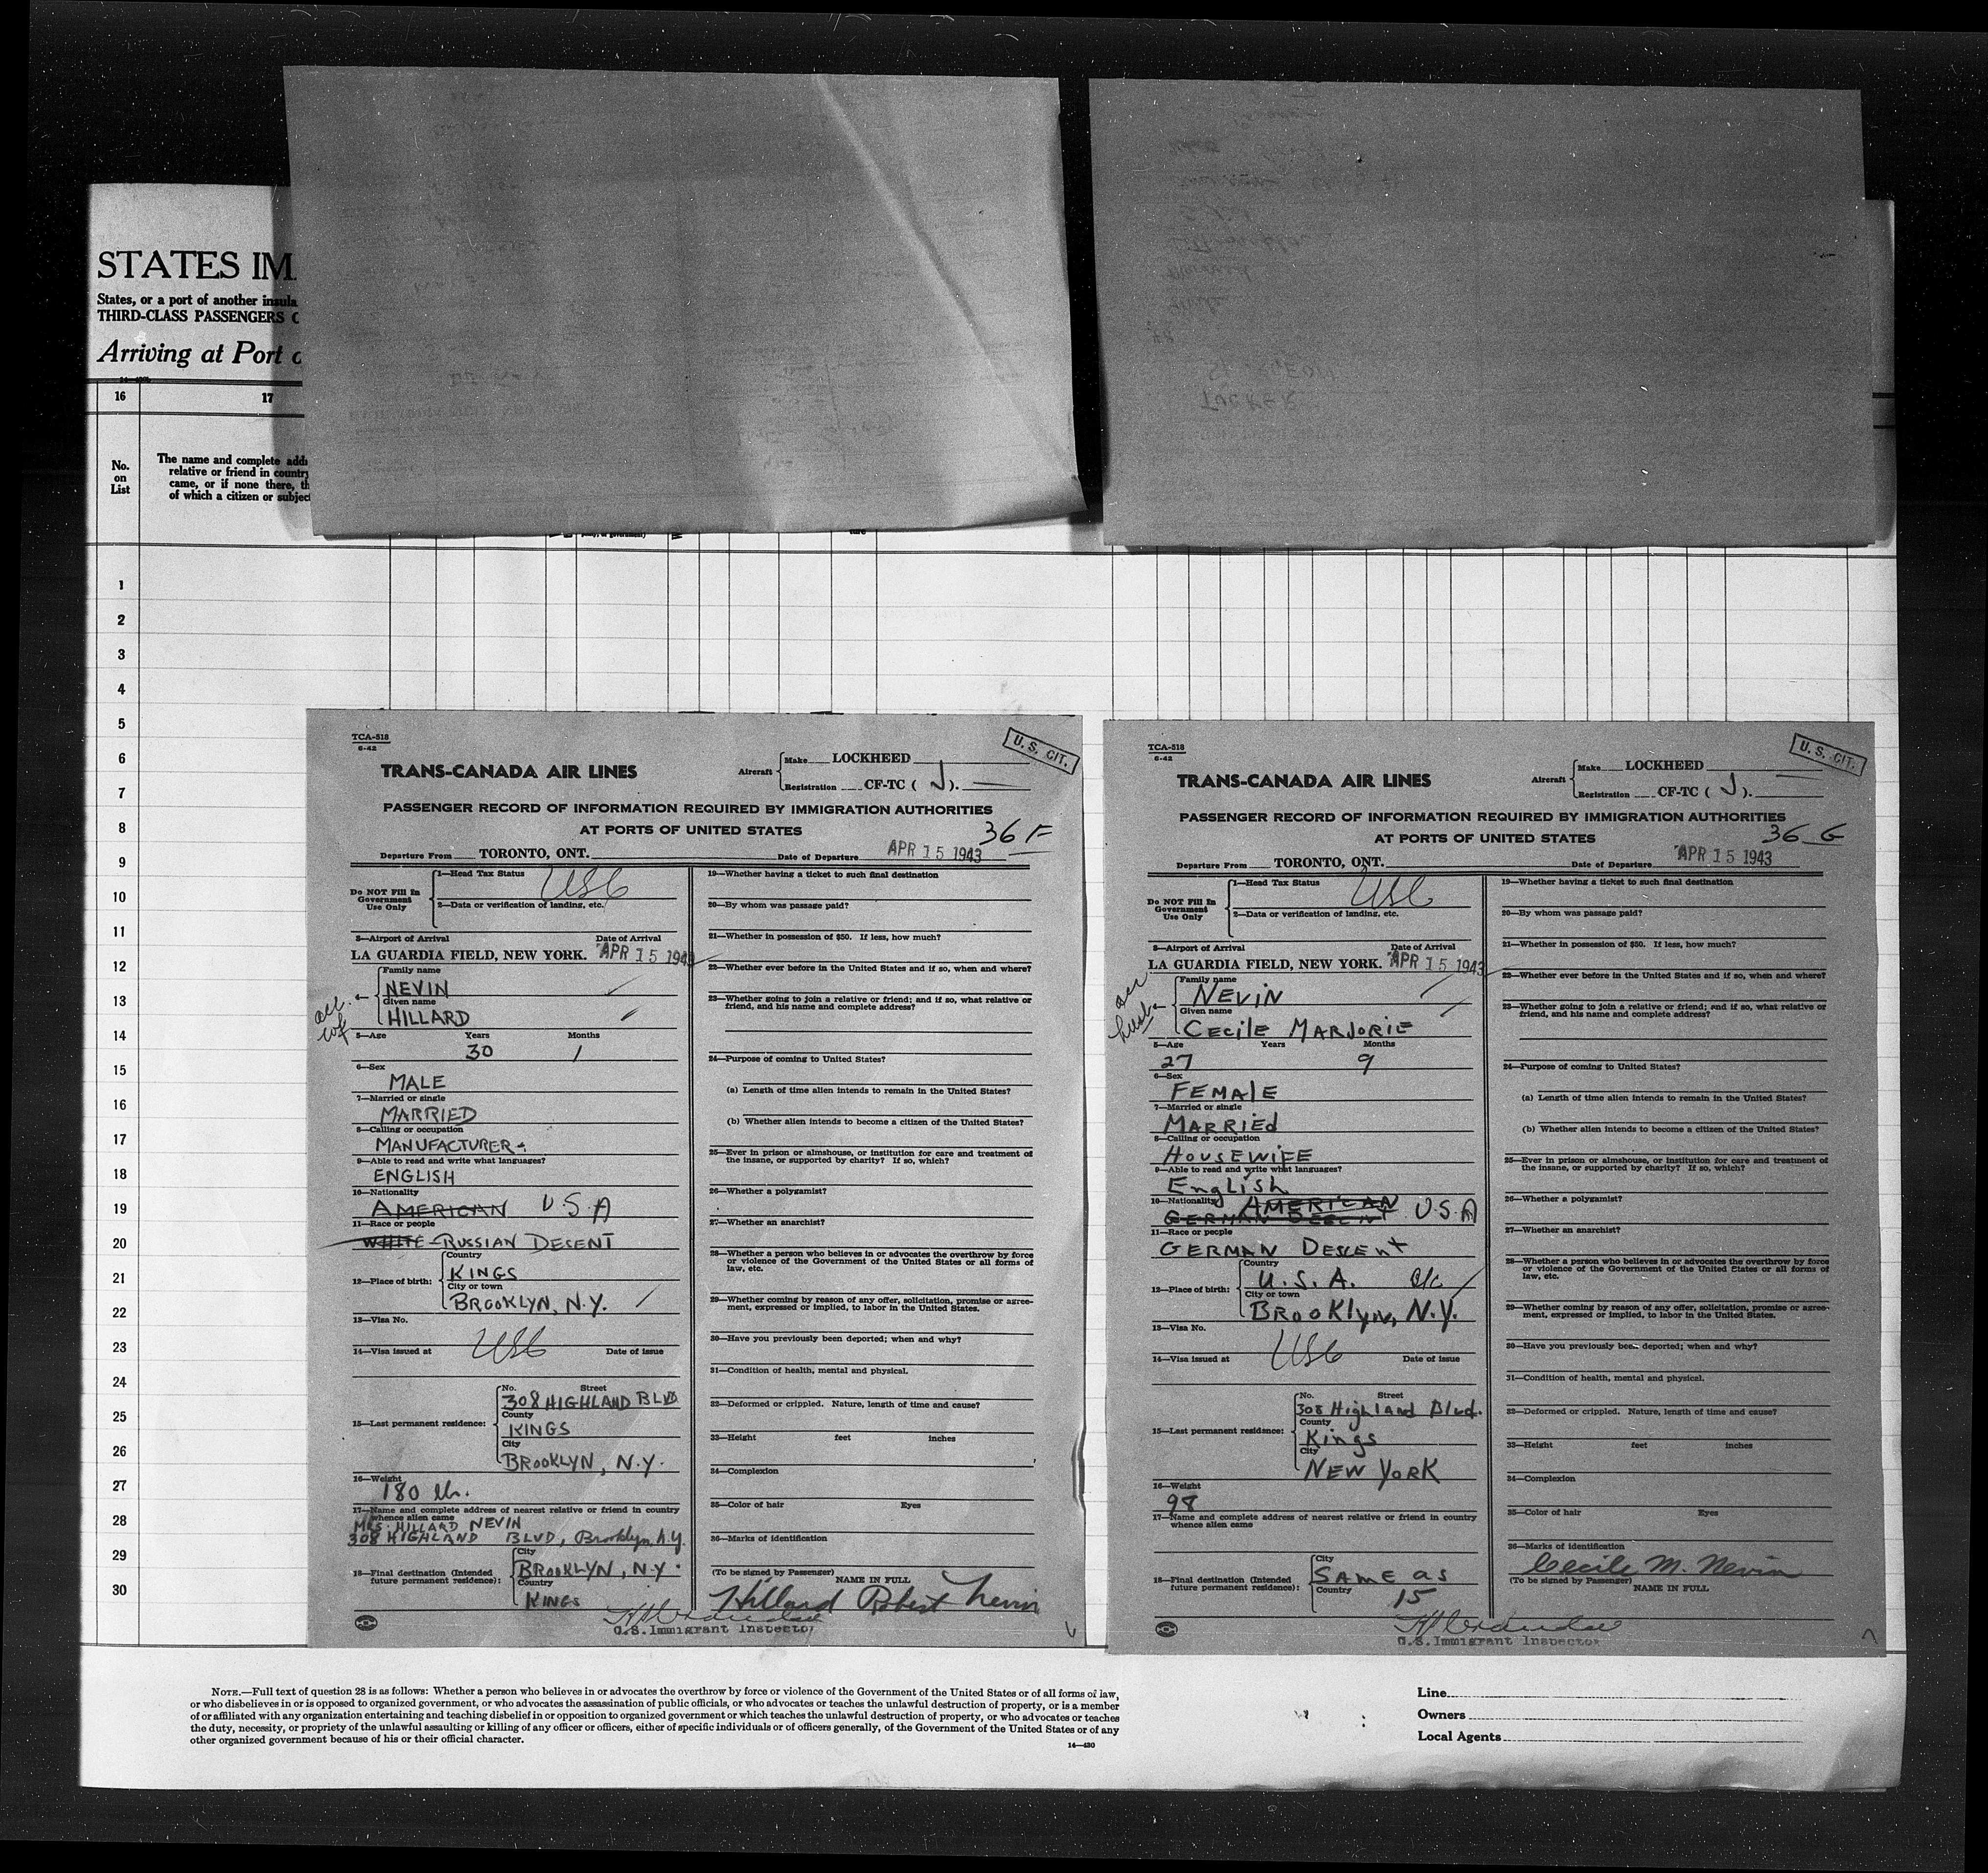 STATES IM
States, or a port of another insula
THIRD-CLASS PASSENGERS
Arriving at Port
16 17
No. on List
The name and complete
relative or friend in country
came, or if none there,
of which a citizen or subject
ture
TUCKER
1
2
3
4
5
6
7
8
9
10
11
12
13
14
15
16
17
18
19
20
21
22
23
24
25
26
27
28
29
30
TCA-518
6-42
U. S. CIT.
TRANS-CANADA AIR LINES
Aircraft Make LOCKHEED
Registration CF-TC ( J ).
PASSENGER RECORD OF INFORMATION REQUIRED BY IMMIGRATION AUTHORITIES
AT PORTS OF UNITED STATES
36 F
Departure From TORONTO, ONT. Date of Departure APR 15 1943
Do NOT Fill In Government Use Only
1—Head Tax Status USC
2—Data or verification of landing, etc.
3—Airport of Arrival Date of Arrival
LA GUARDIA FIELD, NEW YORK. APR 15 1943
Family name
NEVIN
Given name
HILLARD
5—Age Years Months
30 1
6—Sex
MALE
7—Married or single
MARRIED
8—Calling or occupation
MANUFACTURER
9—Able to read and write what languages?
ENGLISH
10—Nationality
AMERICAN U.S.A
11—Race or people
WHITE - RUSSIAN DESENT
12—Place of birth: Country
KINGS
City or town
BROOKLYN, N.Y.
13—Visa No.
USC
14—Visa issued at Date of issue
15—Last permanent residence: No. Street
308 HIGHLAND BLVD
County
KINGS
City
BROOKLYN, N.Y.
16—Weight
180 lb.
17—Name and complete address of nearest relative or friend in country
whence alien came
MRS. HILLARD NEVIN
308 HIGHLAND BLVD, Brooklyn, N.Y.
18—Final destination (Intended future permanent residence): City
BROOKLYN, N.Y.
Country
KINGS
19—Whether having a ticket to such final destination
20—By whom was passage paid?
21—Whether in possession of $50. If less, how much?
22—Whether ever before in the United States and if so, when and where?
23—Whether going to join a relative or friend; and if so, what relative or
friend, and his name and complete address?
24—Purpose of coming to United States?
(a) Length of time alien intends to remain in the United States?
(b) Whether alien intends to become a citizen of the United States?
25—Ever in prison or almshouse, or institution for care and treatment of
the insane, or supported by charity? If so, which?
26—Whether a polygamist?
27—Whether an anarchist?
28—Whether a person who believes in or advocates the overthrow by force
or violence of the Government of the United States or all forms of
law, etc.
29—Whether coming by reason of any offer, solicitation, promise or agree-
ment, expressed or implied, to labor in the United States.
30—Have you previously been deported; when and why?
31—Condition of health, mental and physical.
32—Deformed or crippled. Nature, length of time and cause?
33—Height feet inches
34—Complexion
35—Color of hair Eyes
36—Marks of identification
(To be signed by Passenger) NAME IN FULL
Hillard Robert Nevin
U.S. Immigrant Inspector
TCA-518
6-42
U. S. CIT.
TRANS-CANADA AIR LINES
Aircraft Make LOCKHEED
Registration CF-TC ( J ).
PASSENGER RECORD OF INFORMATION REQUIRED BY IMMIGRATION AUTHORITIES
AT PORTS OF UNITED STATES
36 G
Departure From TORONTO, ONT. Date of Departure APR 15 1943
Do NOT Fill In Government Use Only
1—Head Tax Status USC
2—Data or verification of landing, etc.
3—Airport of Arrival Date of Arrival
LA GUARDIA FIELD, NEW YORK. APR 15 1943
Family name
NEVIN
Given name
CECILE MARJORIE
5—Age Years Months
27 9
6—Sex
FEMALE
7—Married or single
MARRIED
8—Calling or occupation
HOUSEWIFE
9—Able to read and write what languages?
English
10—Nationality AMERICAN U.S.A
GERMAN
11—Race or people
GERMAN DESCENT
12—Place of birth: Country
U.S.A.
City or town
BROOKlyN, N.Y.
13—Visa No.
USC
14—Visa issued at Date of issue
15—Last permanent residence: No. Street
308 Highland Blvd.
County
Kings
City
NEW YORK
16—Weight
98
17—Name and complete address of nearest relative or friend in country
whence alien came
18—Final destination (Intended future permanent residence): City
SAME as
Country
15
19—Whether having a ticket to such final destination
20—By whom was passage paid?
21—Whether in possession of $50. If less, how much?
22—Whether ever before in the United States and if so, when and where?
23—Whether going to join a relative or friend; and if so, what relative or
friend, and his name and complete address?
24—Purpose of coming to United States?
(a) Length of time alien intends to remain in the United States?
(b) Whether alien intends to become a citizen of the United States?
25—Ever in prison or almshouse, or institution for care and treatment of
the insane, or supported by charity? If so, which?
26—Whether a polygamist?
27—Whether an anarchist?
28—Whether a person who believes in or advocates the overthrow by force
or violence of the Government of the United States or all forms of
law, etc.
29—Whether coming by reason of any offer, solicitation, promise or agree-
ment, expressed or implied, to labor in the United States.
30—Have you previously been deported; when and why?
31—Condition of health, mental and physical.
32—Deformed or crippled. Nature, length of time and cause?
33—Height feet inches
34—Complexion
35—Color of hair Eyes
36—Marks of identification
Cecile M. Nevin
(To be signed by Passenger) NAME IN FULL
U.S. Immigrant Inspector
NOTE.—Full text of question 28 is as follows: Whether a person who believes in or advocates the overthrow by force or violence of the Government of the United States or of all forms of law,
or who disbelieves in or is opposed to organized government, or who advocates the assassination of public officials, or who advocates or teaches the unlawful destruction of property, or is a member
of or affiliated with any organization entertaining and teaching disbelief in or opposition to organized government or which teaches the unlawful destruction of property, or who advocates or teaches
the duty, necessity, or propriety of the unlawful assaulting or killing of any officer or officers, either of specific individuals or of officers generally, of the Government of the United States or of any
other organized government because of his or their official character.
14—430
Line
Owners
Local Agents